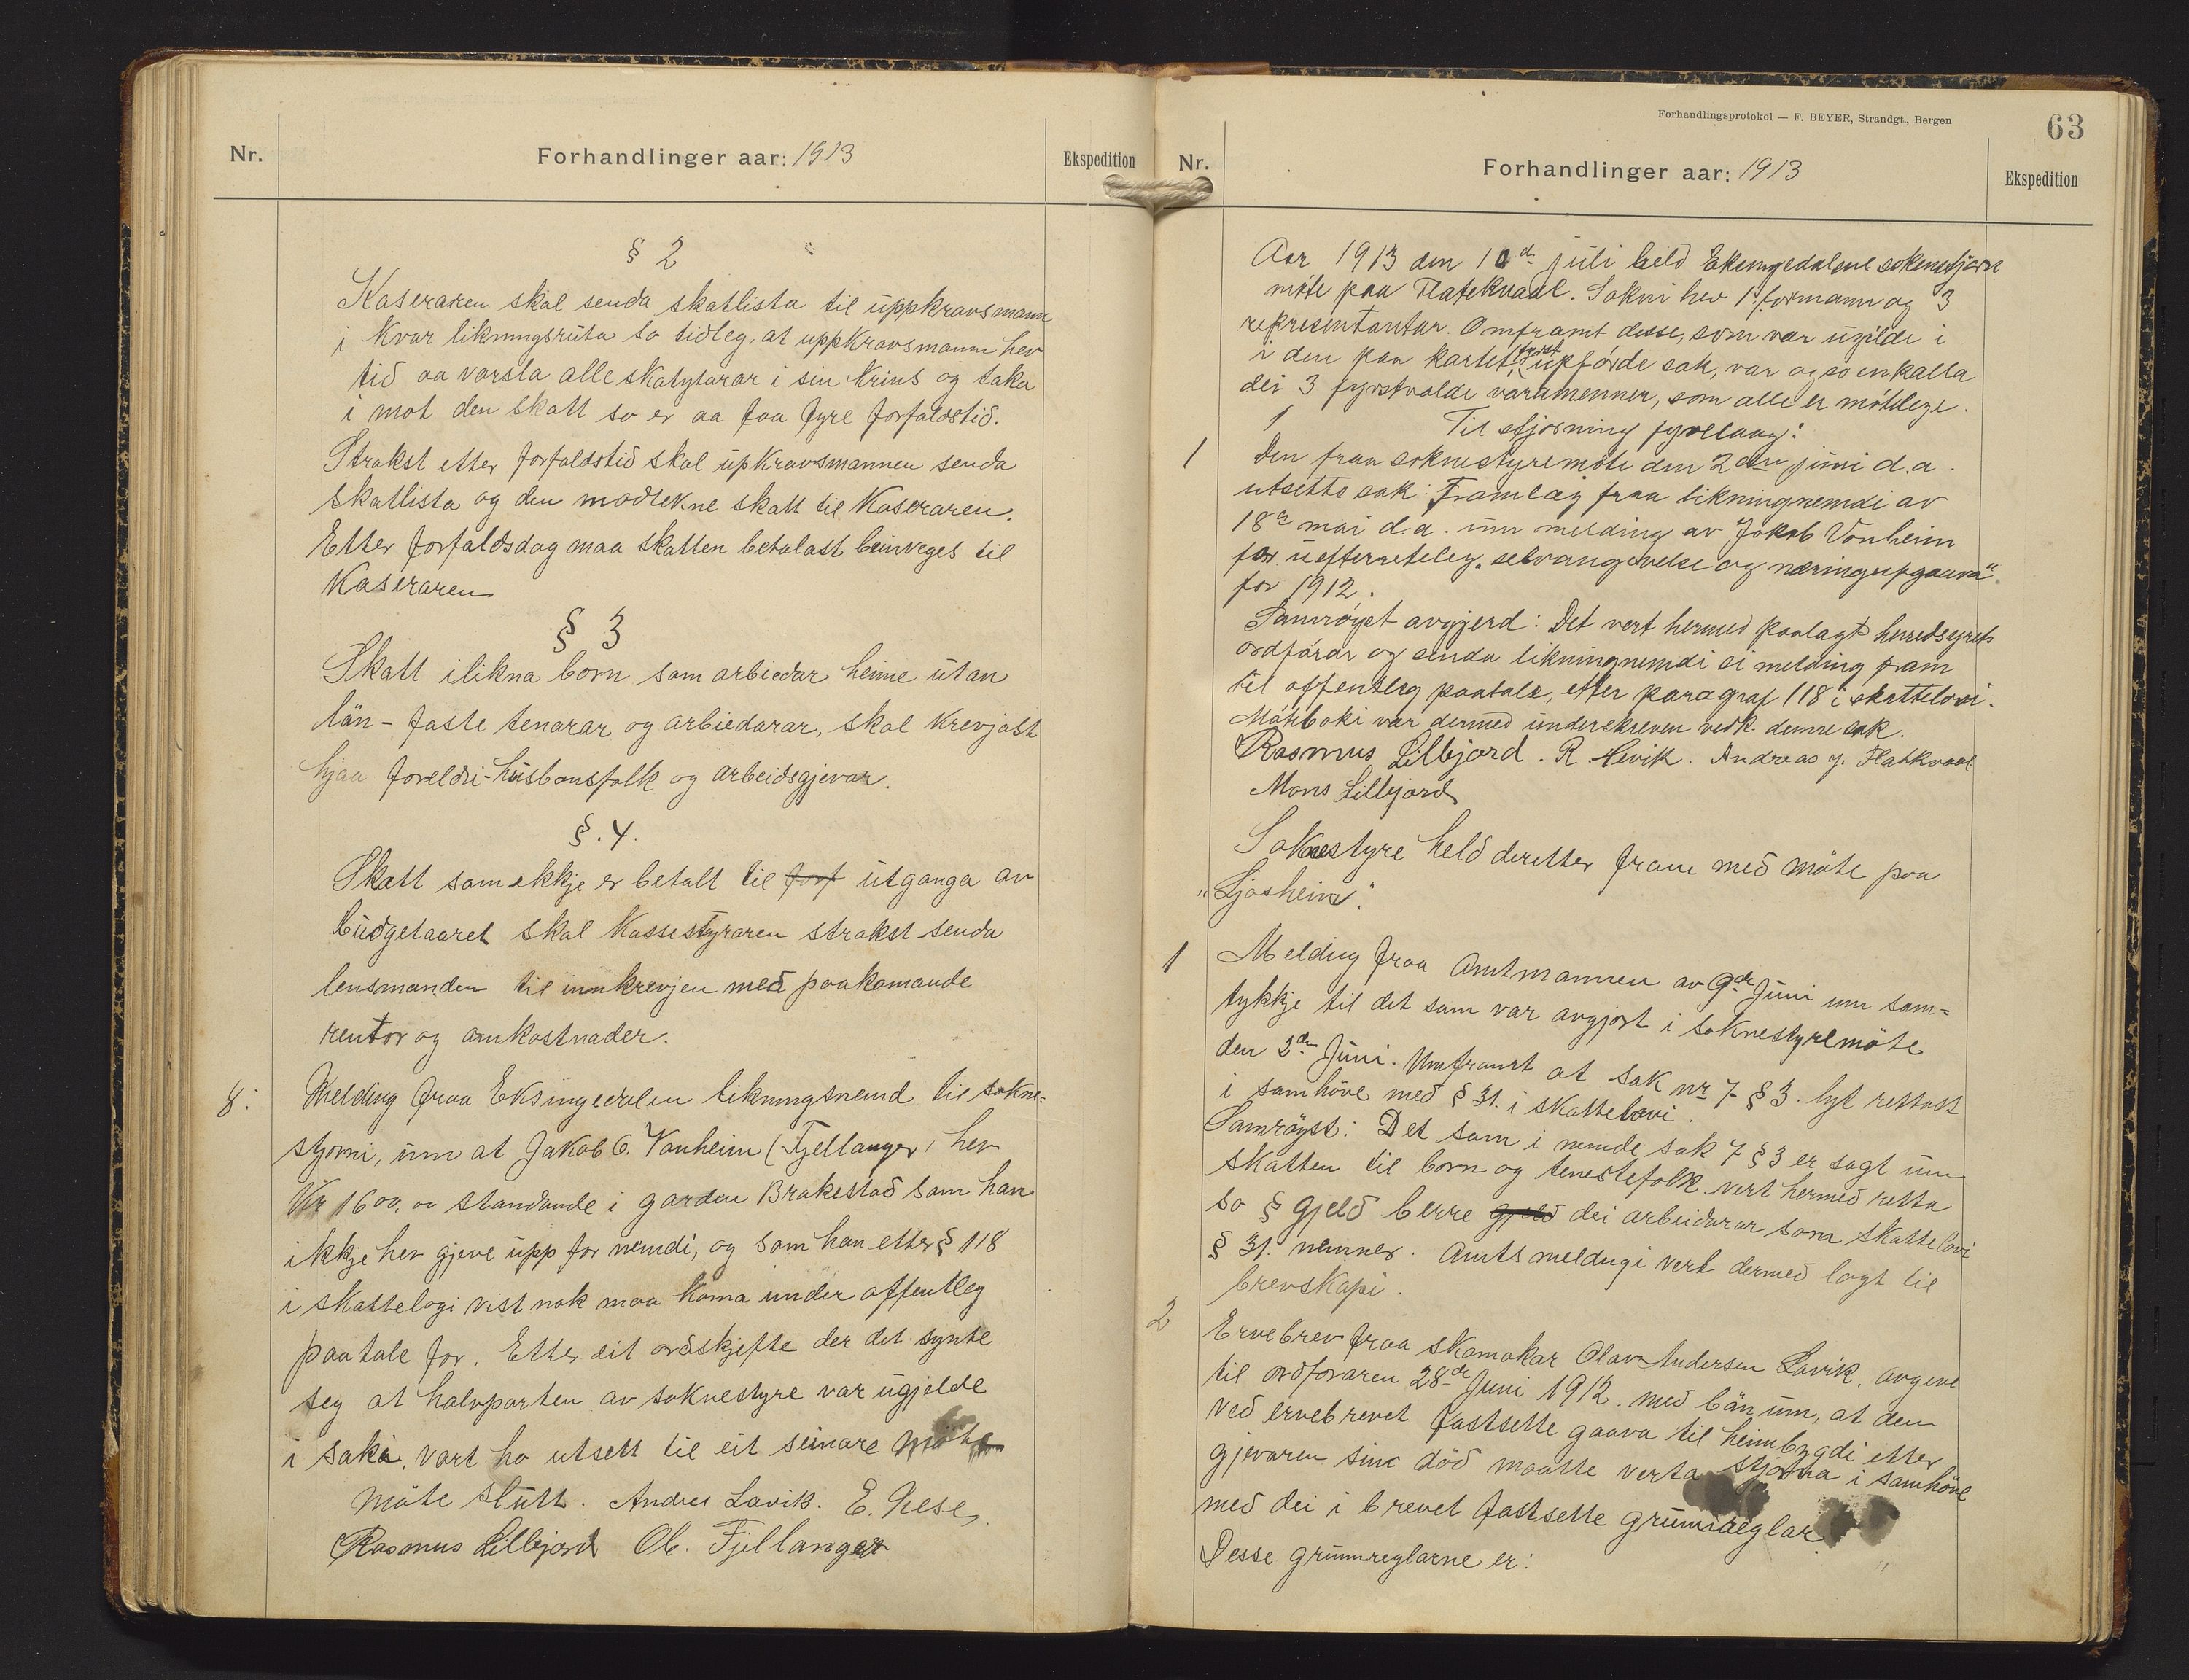 Nr.
Forhandlinger aar: 1913
Ekspedition
§ 2
Kaseraren skal senda skatlista til uppkravsmann
i kvar likningsruta so tidleg, at uppkravsmann hev
tid aa varsla alle skatytarar i sin krins og taka
i mot den skatt so er aa faa fyre forfaldstid.
Strakst etter forfaldstid skal upkravsmannen senda
skatlista og den modtekne skatt til Kaseraren.
Etter forfaldsdag maa skatten betalast beinveges til
Kaseraren
§ 3
Skatt ilikna born som arbiedar heime utan
lön - faste tenarar og arbiedarar, skal krevjast
hjaa foreldri - husbonsfolk og arbeidsgjevar.
§. 4.
Skatt som ekkje er betalt til forf utganga av
budgetaaret skal Kassestyraren strakst senda
lensmanden til innkrevjen med paakomande
rentor og omkostnader.
8: Melding fraa Eksingedalen likningsnemd til sokne-
styorni, um at Jakob O. Vonheim (Fjellanger) hev
Kr 1600,00 standande i garden Brakestad som han
ikkje hev gjeve upp for nemdi, og som han etter § 118
i skattelogi vist nok maa koma under offentleg
paatale for. Etter eit ordskjefte der det synte
seg at halvparten av soknestyre var ugjelde
i saki, vart ho utsett til eit seinare möte
möte slutt. Andres Lavik. E. Nese,
Rasmus Lillejord Ol. Fjellanger
Forhandlingsprotokol — F. BEYER, Strandgt., Bergen
63
Nr.
Forhandlinger aar: 1913
Ekspedition
Aar 1913 den 10de juli held Eksingedalens soknestjorn
möte paa Flatekvaal. Sokni hev 1 formann og 3
representantar. Omframt desse, som var ugilde i
i den paa kartet, fyrst upförde sak, var og so enkalla
dei 3 fyrstvalde varamenner, som alle er mötelege.
Til stjorning fyrelaag:
1 Den fraa soknestyremöte den 2den juni d.a.
utsette sak: Framlag fraa likningnemdi av
18de mai d.a. um melding av Jokob Vonheim
for uefterreteleg "selvangivelse og næringsupgaava"
for 1912.
Samröyst avgjerd: Det vert hermed paalagt herredsyrets
ordförar og senda likningnemdi si melding fram
til offentleg paatale, etter paragraf 118 i skattelovi.
Möteboki var dermed underskreven vedk. denne sak.
Rasmus Lillejord. R. Hevik. Andreas J. Flatkvaal
Mons Lillejord
Soknestyre held deretter fram med möte paa
"Ljosheim".
1 Melding fraa Amtmannen av 9de Juni um sam=
tykkje til det som var avgjort i soknestyremöte
den 2den Juni. Umframt at sak nr 7 - § 3. lyt rettast
i samhöve med § 31. i skattelovi.
Samröyst: Det som i nemde sak 7 § 3 er sagt um
skatten til born og tenestefolk vert hermed retta
so § gjeld berre gjeld dei arbeidarar som skattelovi
§ 31. nemner. Amtsmeldingi vert dermed lagt til
brevskapi.
2 Ervebrev fraa skomakar Olav Andersen Lavik, avgeve
til ordforaren 28de Juni 1912. med bön um, at den
ved ervebrevet fastsette gaava til heimbygdi etter
gjevaren sin död maatte verta stjorna i samhöve
med dei i brevet fastsette grunnreglar.
Desse grunnreglarne er: